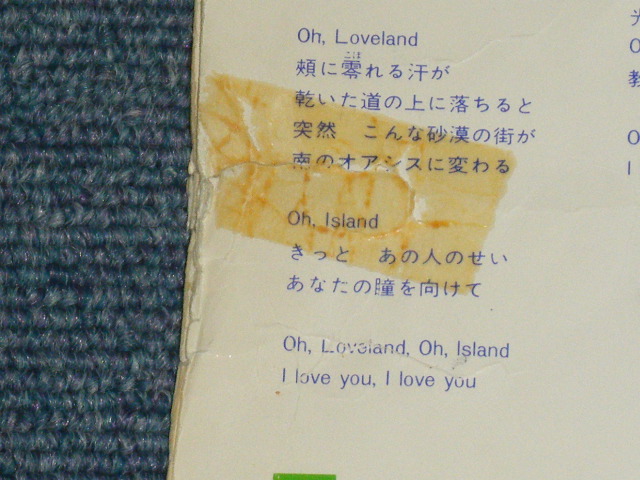 Oh, Loveland
頬に零れる汗が
こぼ
乾いた道の上に落ちると
突然　こんな砂漠の街が
南のオアシスに変わる
Oh, Island
きっと　あの人のせい
あなたの瞳を向けて
Oh, Loveland, Oh, Island
I love you, I love you
光
O
教
O
I